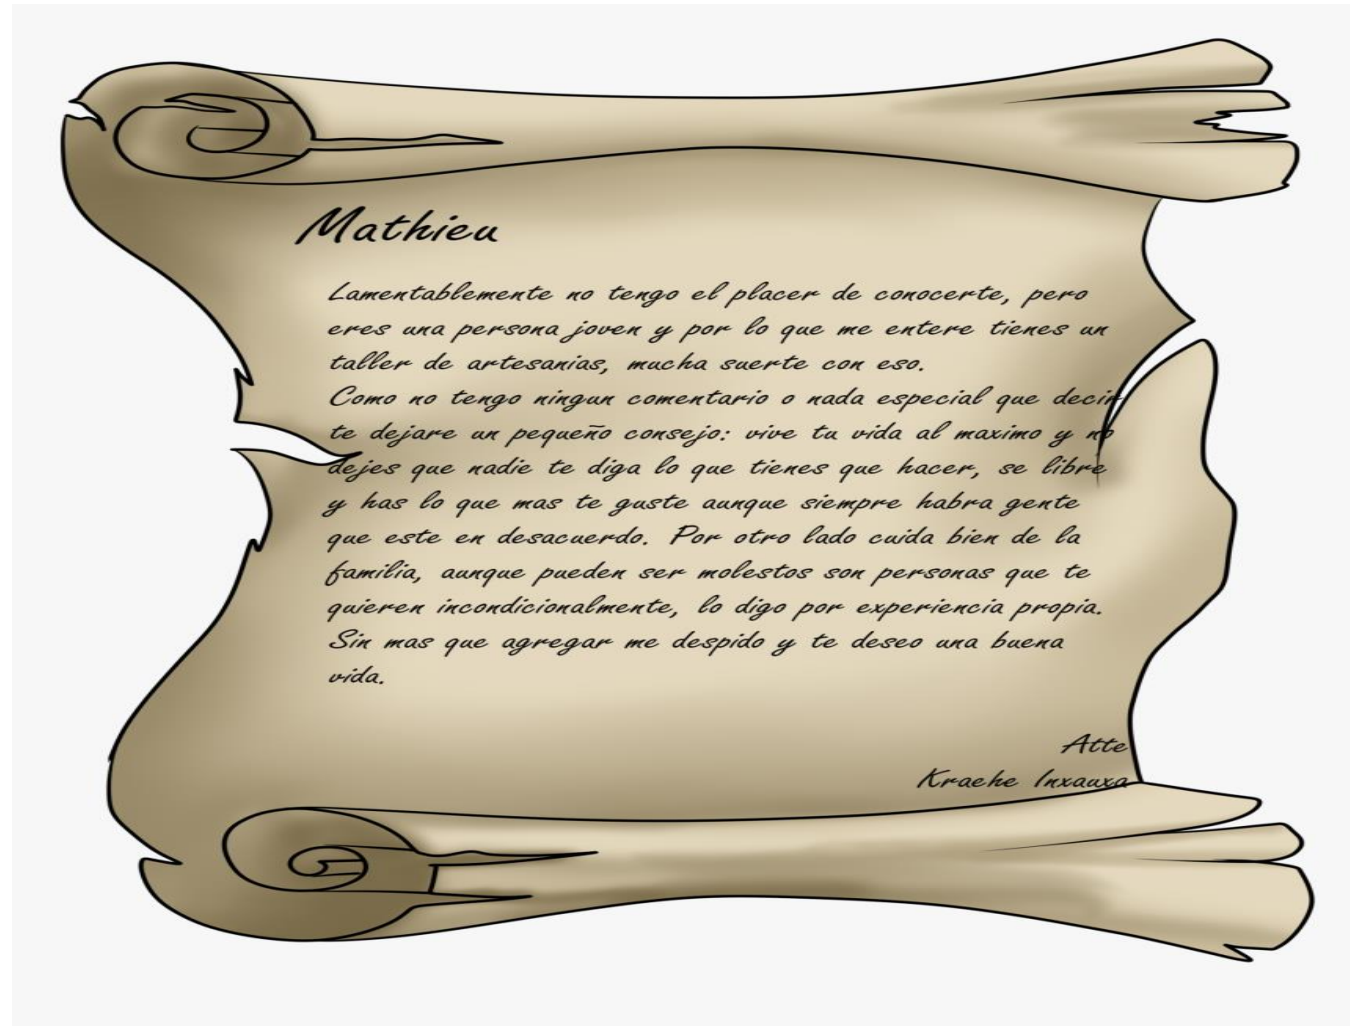 Mathieu
Lamentablemente no tengo el placer de conocerte, pero
eres una persona joven y por lo que me entere tienes un
taller de artesanias, mucha suerte con eso.
Como no tengo ningun comentario o nada especial que decir
te dejare un pequeño consejo: vive tu vida al maximo y no
dejes que nadie te diga lo que tienes que hacer, se libre
y has lo que mas te guste aunque siempre habra gente
que este en desacuerdo. Por otro lado cuida bien de la
familia, aunque pueden ser molestos son personas que te
quieren incondicionalmente, lo digo por experiencia propia.
Sin mas que agregar me despido y te deseo una buena
vida.
Atte
Kraehe Inxauxa